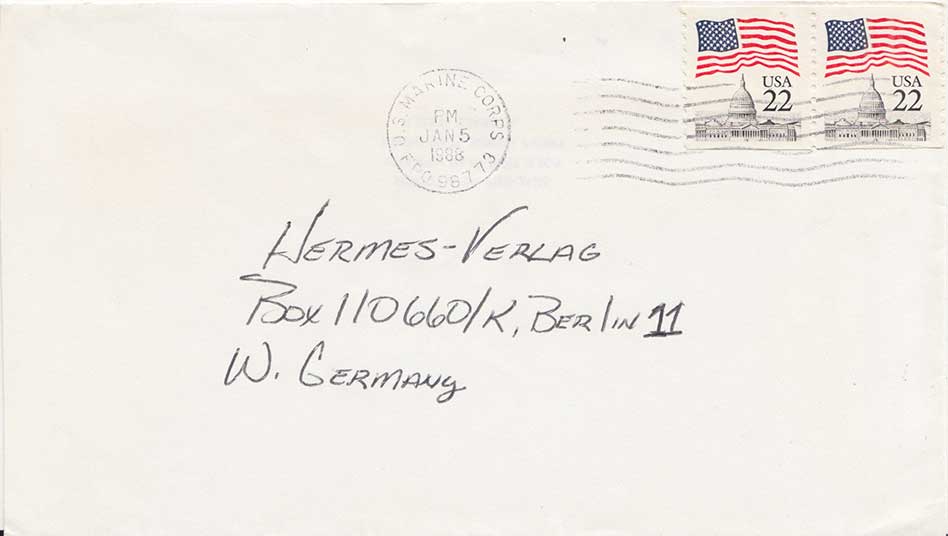 U.S. MARINE CORPS
PM
JAN 5
1988
FPO 98773
USA
22
USA
22
HERMES-VERLAG
BOX 110660/K, BERLIN 11
W. GERMANY